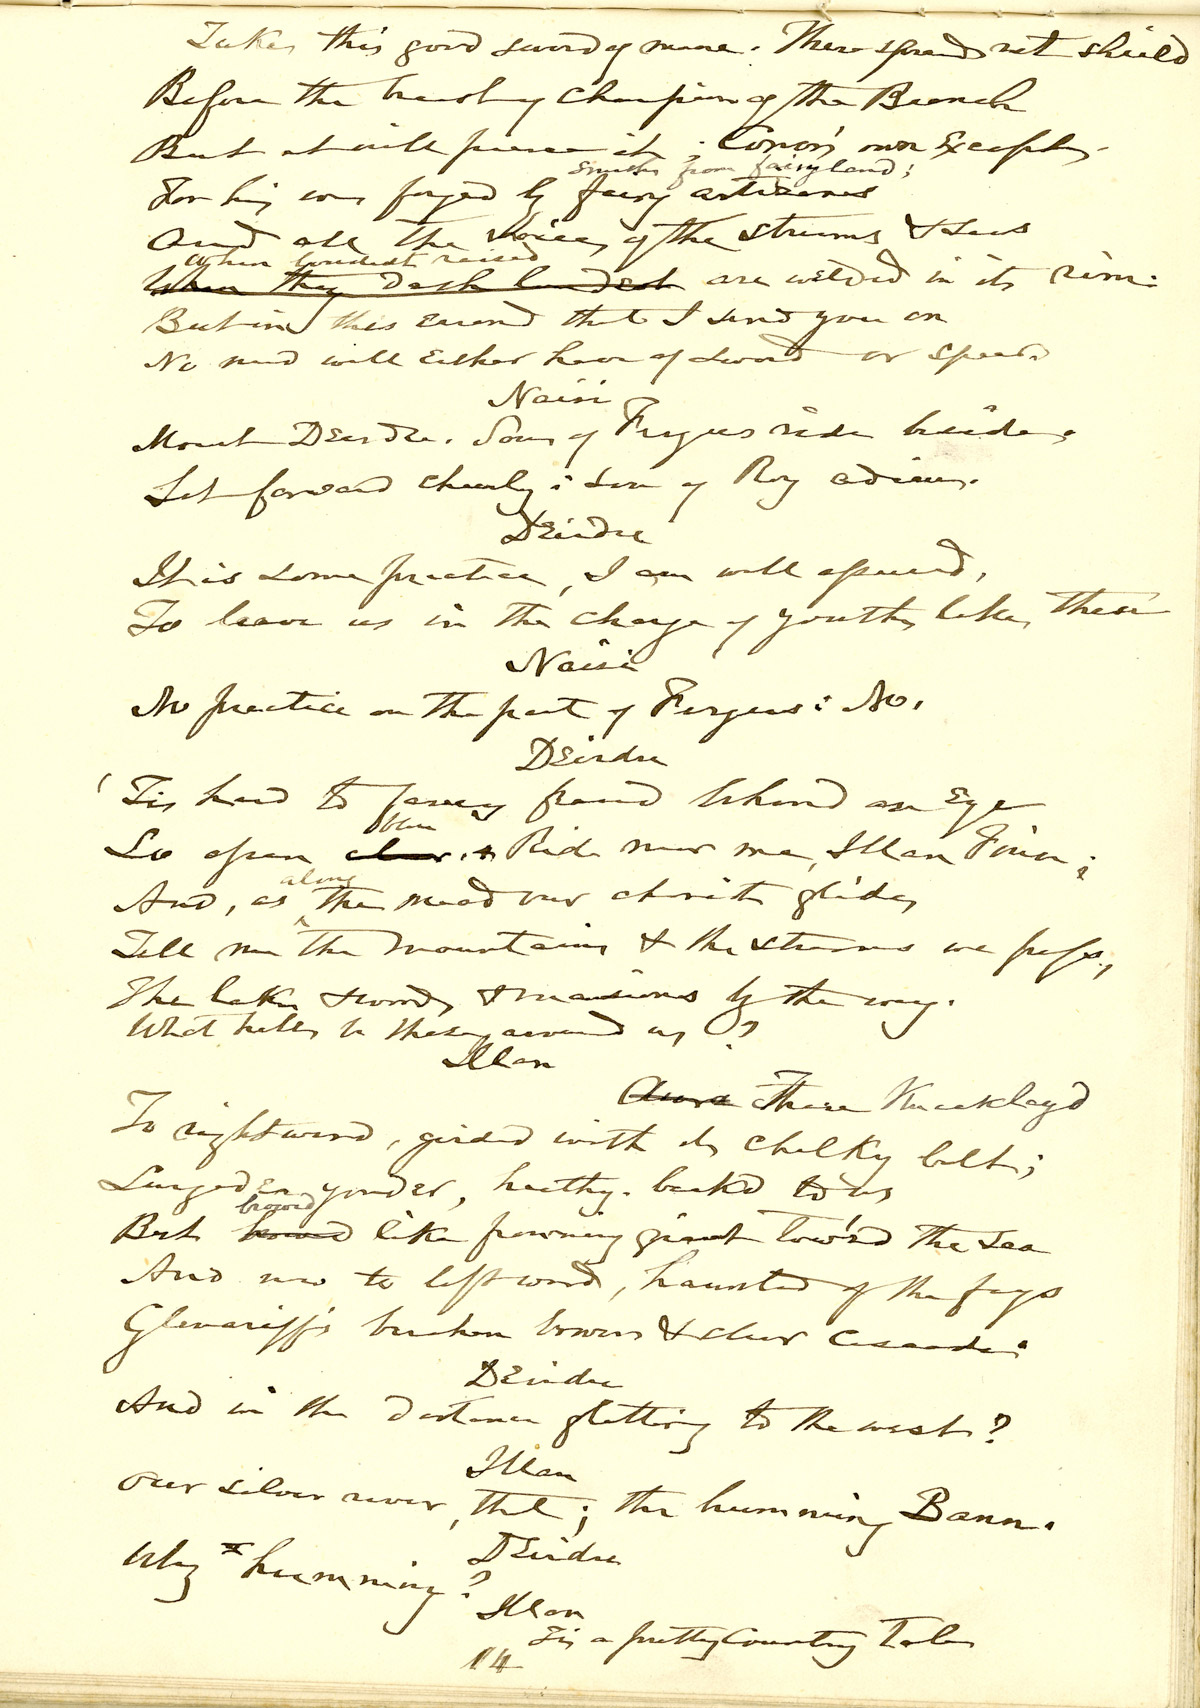 Take this good sword of mine. There spreads not shield
Before the breast of champion of the Branch
But it will pierce it; Conor's own except,
smiths from fairyland;
For his was forged by fairy artizans
And all the voices of the streams & seas
When loudest raised
When they dash loudest are welded in its rim:
But in this errand that I send you on
No need will either have of sword or spear.
Naisi
Mount Deirdre. Sons of Fergus ride beside,
Set forward cheerly: Son of Roy adieu.
Deirdre
It is some practice, I am well assured,
To leave us in the charge of youths like these
Naisi
No practice on the part of Fergus: No.
Deirdre
'Tis hard to fancy fraud behind an eye
blue
So open clear. + Ride near me, Illan Finn;
along
And, as the mead our chariot glides,
Tell me the mountains & the streams we pass,
The lakes & woods, & mansions by the way.
What hills be these around us?
Illan
There Knocklayd
To rightward, girded with its chalky belt;
Lurgeden yonder, heathy-back'd to us
brow'd
But browed like frowning giant tow'rd the Sea
And now to leftward, haunted of the fays
Glenariff's broken bowers & clear cascades:
Deirdre
And in the distance glittering to the west?
Illan
Our silver river, that; the humming Bann.
Deirdre
Why humming?
Illan
Tis a pretty Country Tale
14